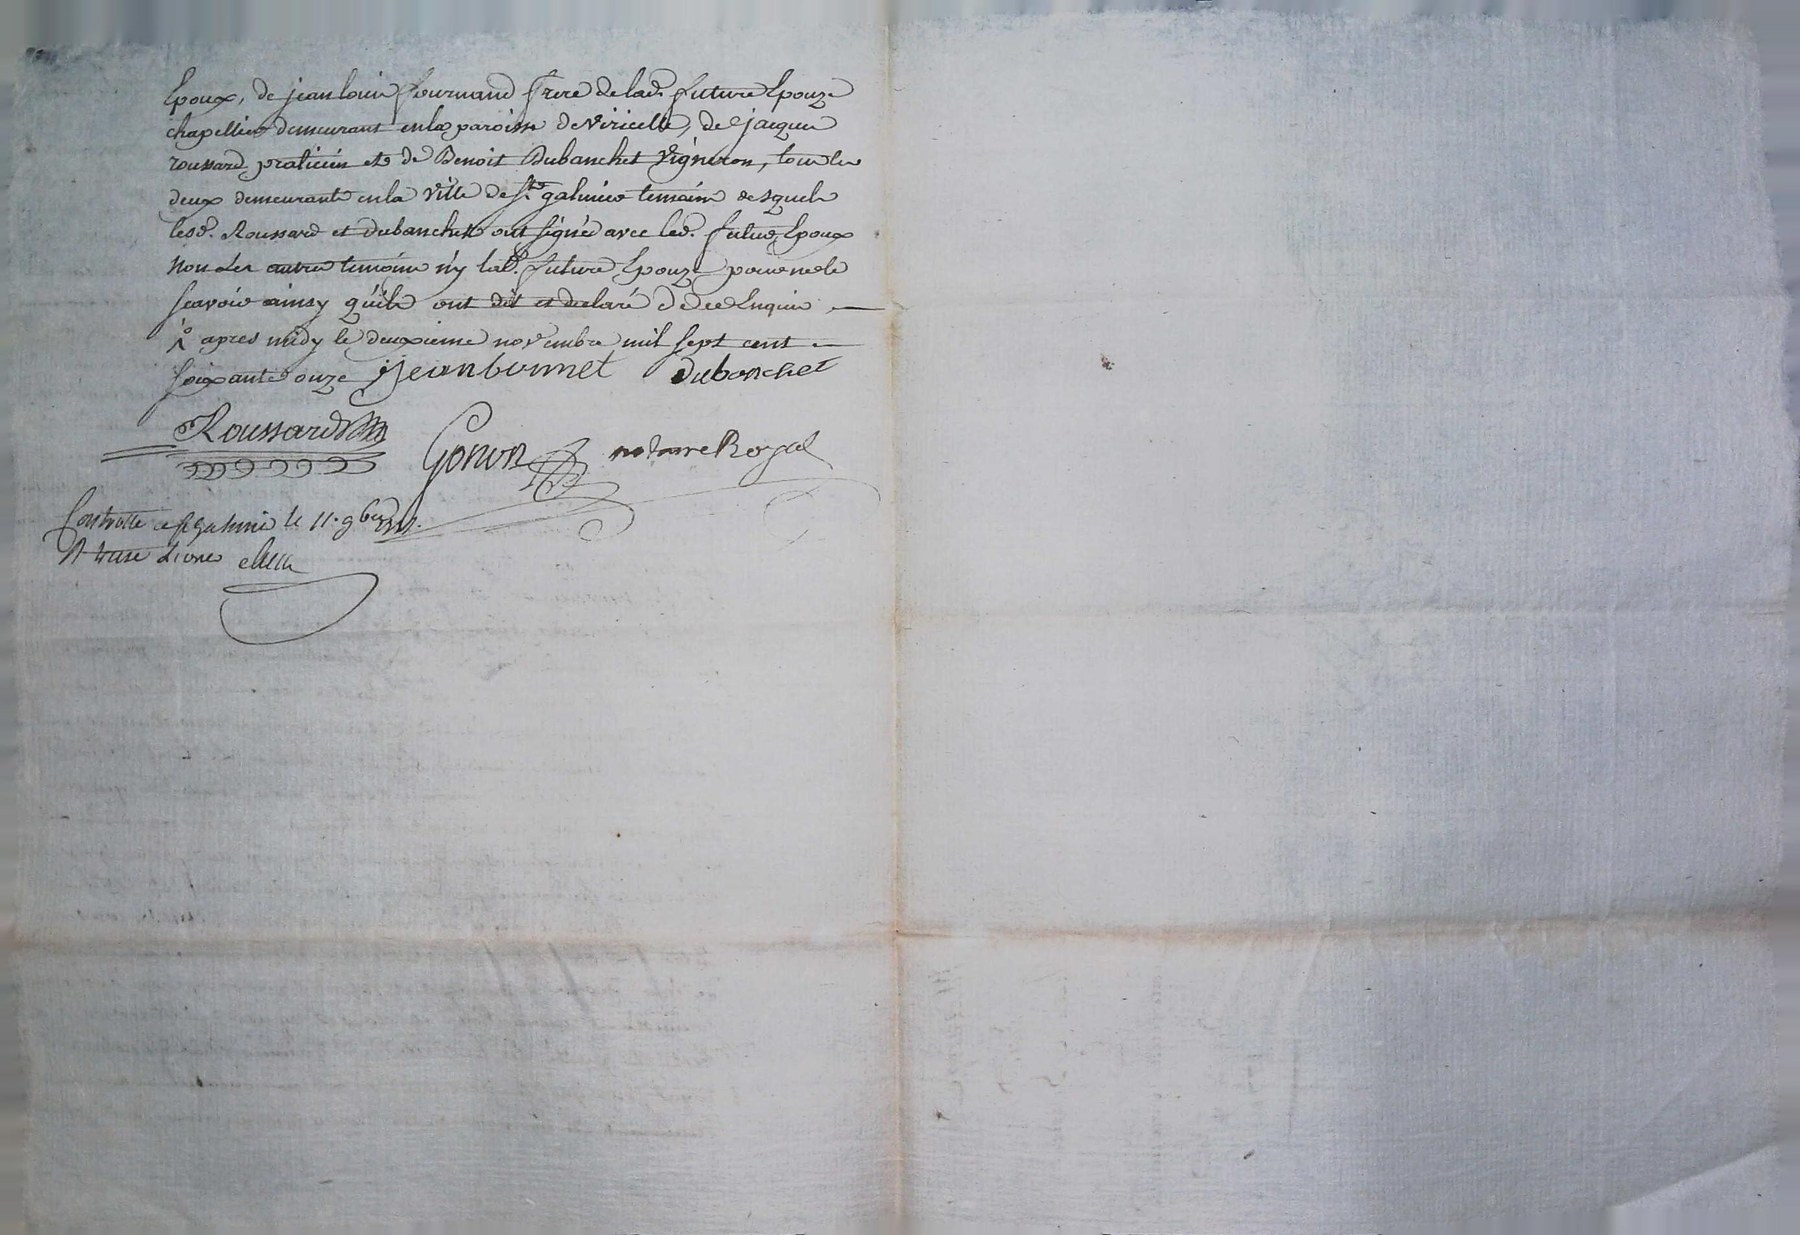 Epoux, de jean louis fournand frere de lad. future Epouze
chapellier demeurant en la paroisse de viricelle, de jacques
roussard praticien et de Benoit Dubanchet vigneron, tous les
deux demeurants en la ville de st. galmier temoins desquels
lesd. Roussard et dubanchet ont signé avec led. futur Epoux
non les autres temoins n'y lad. future Epouze pour ne le
scavoir ainsy quils ont dit et declaré de ce Enquis
apres midy le deuxieme novembre mil sept cent
soixante onze Jean bonnet dubanchet
Roussard Gonon notaire Royal
Controllé a st galmier le 11. 9bre 1771.
R treize Livres